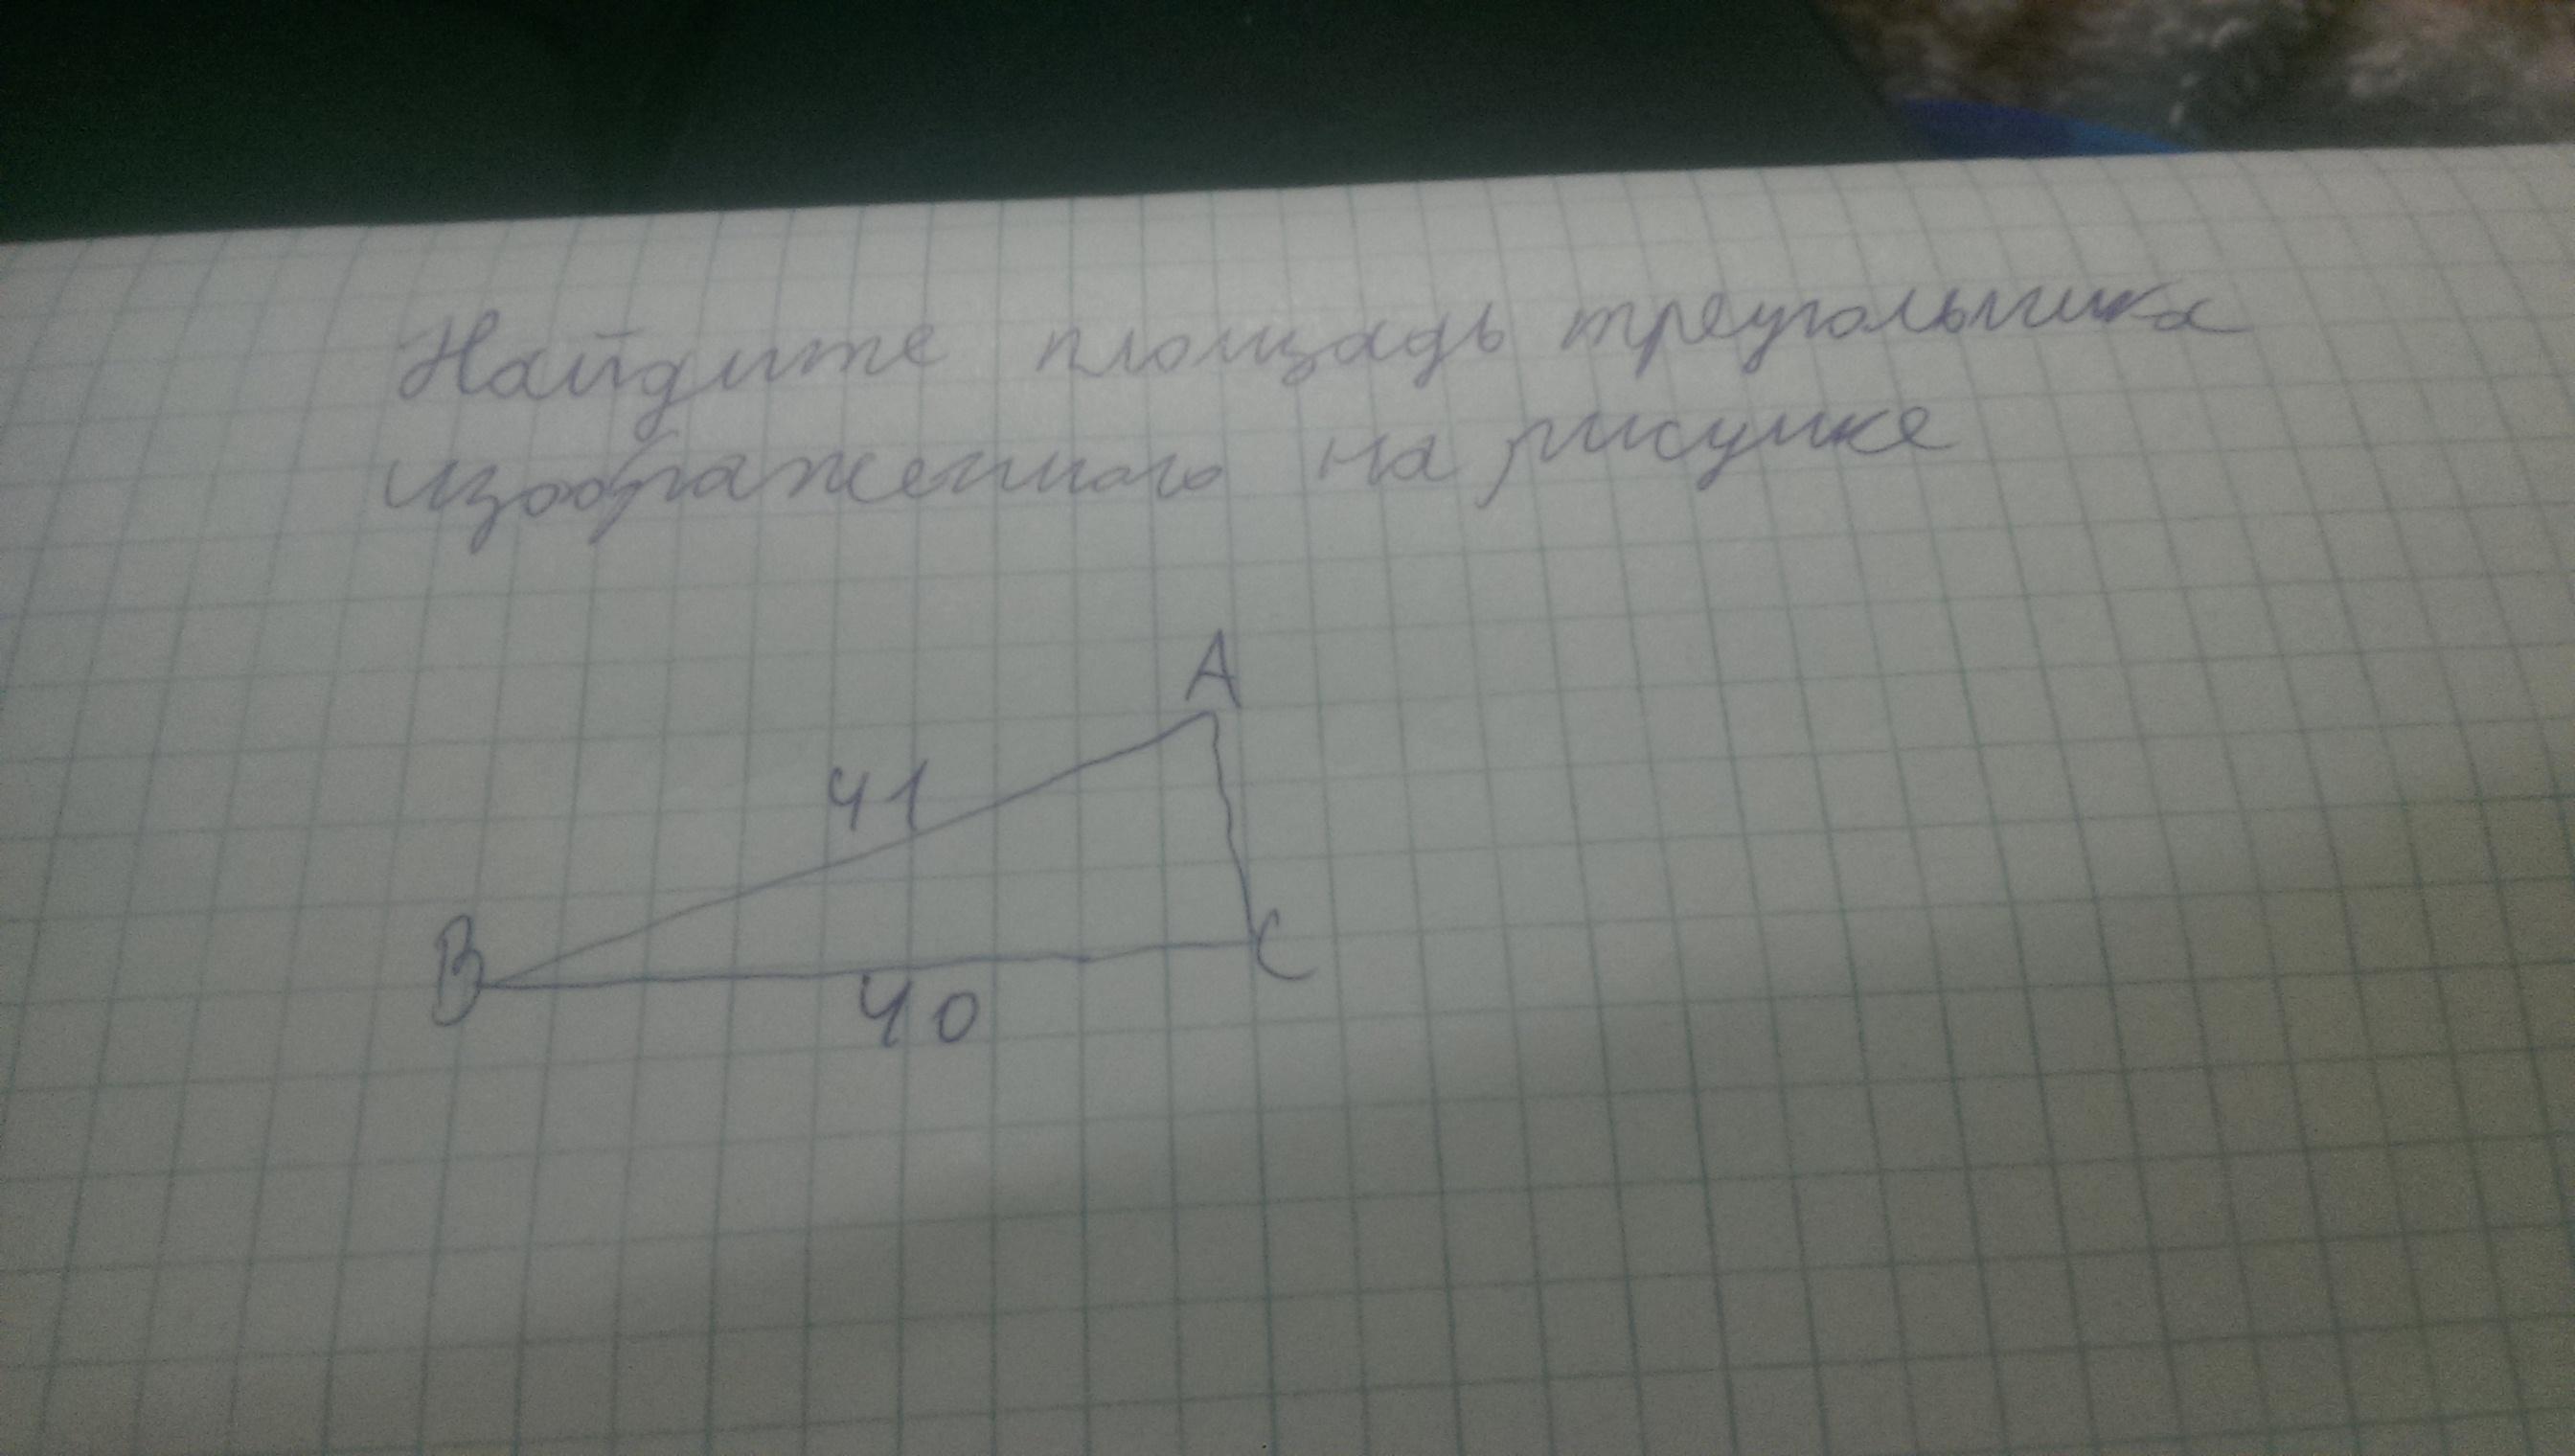 Найдите площадь треугольника
изображенного на рисунке
A
41
B
C
40